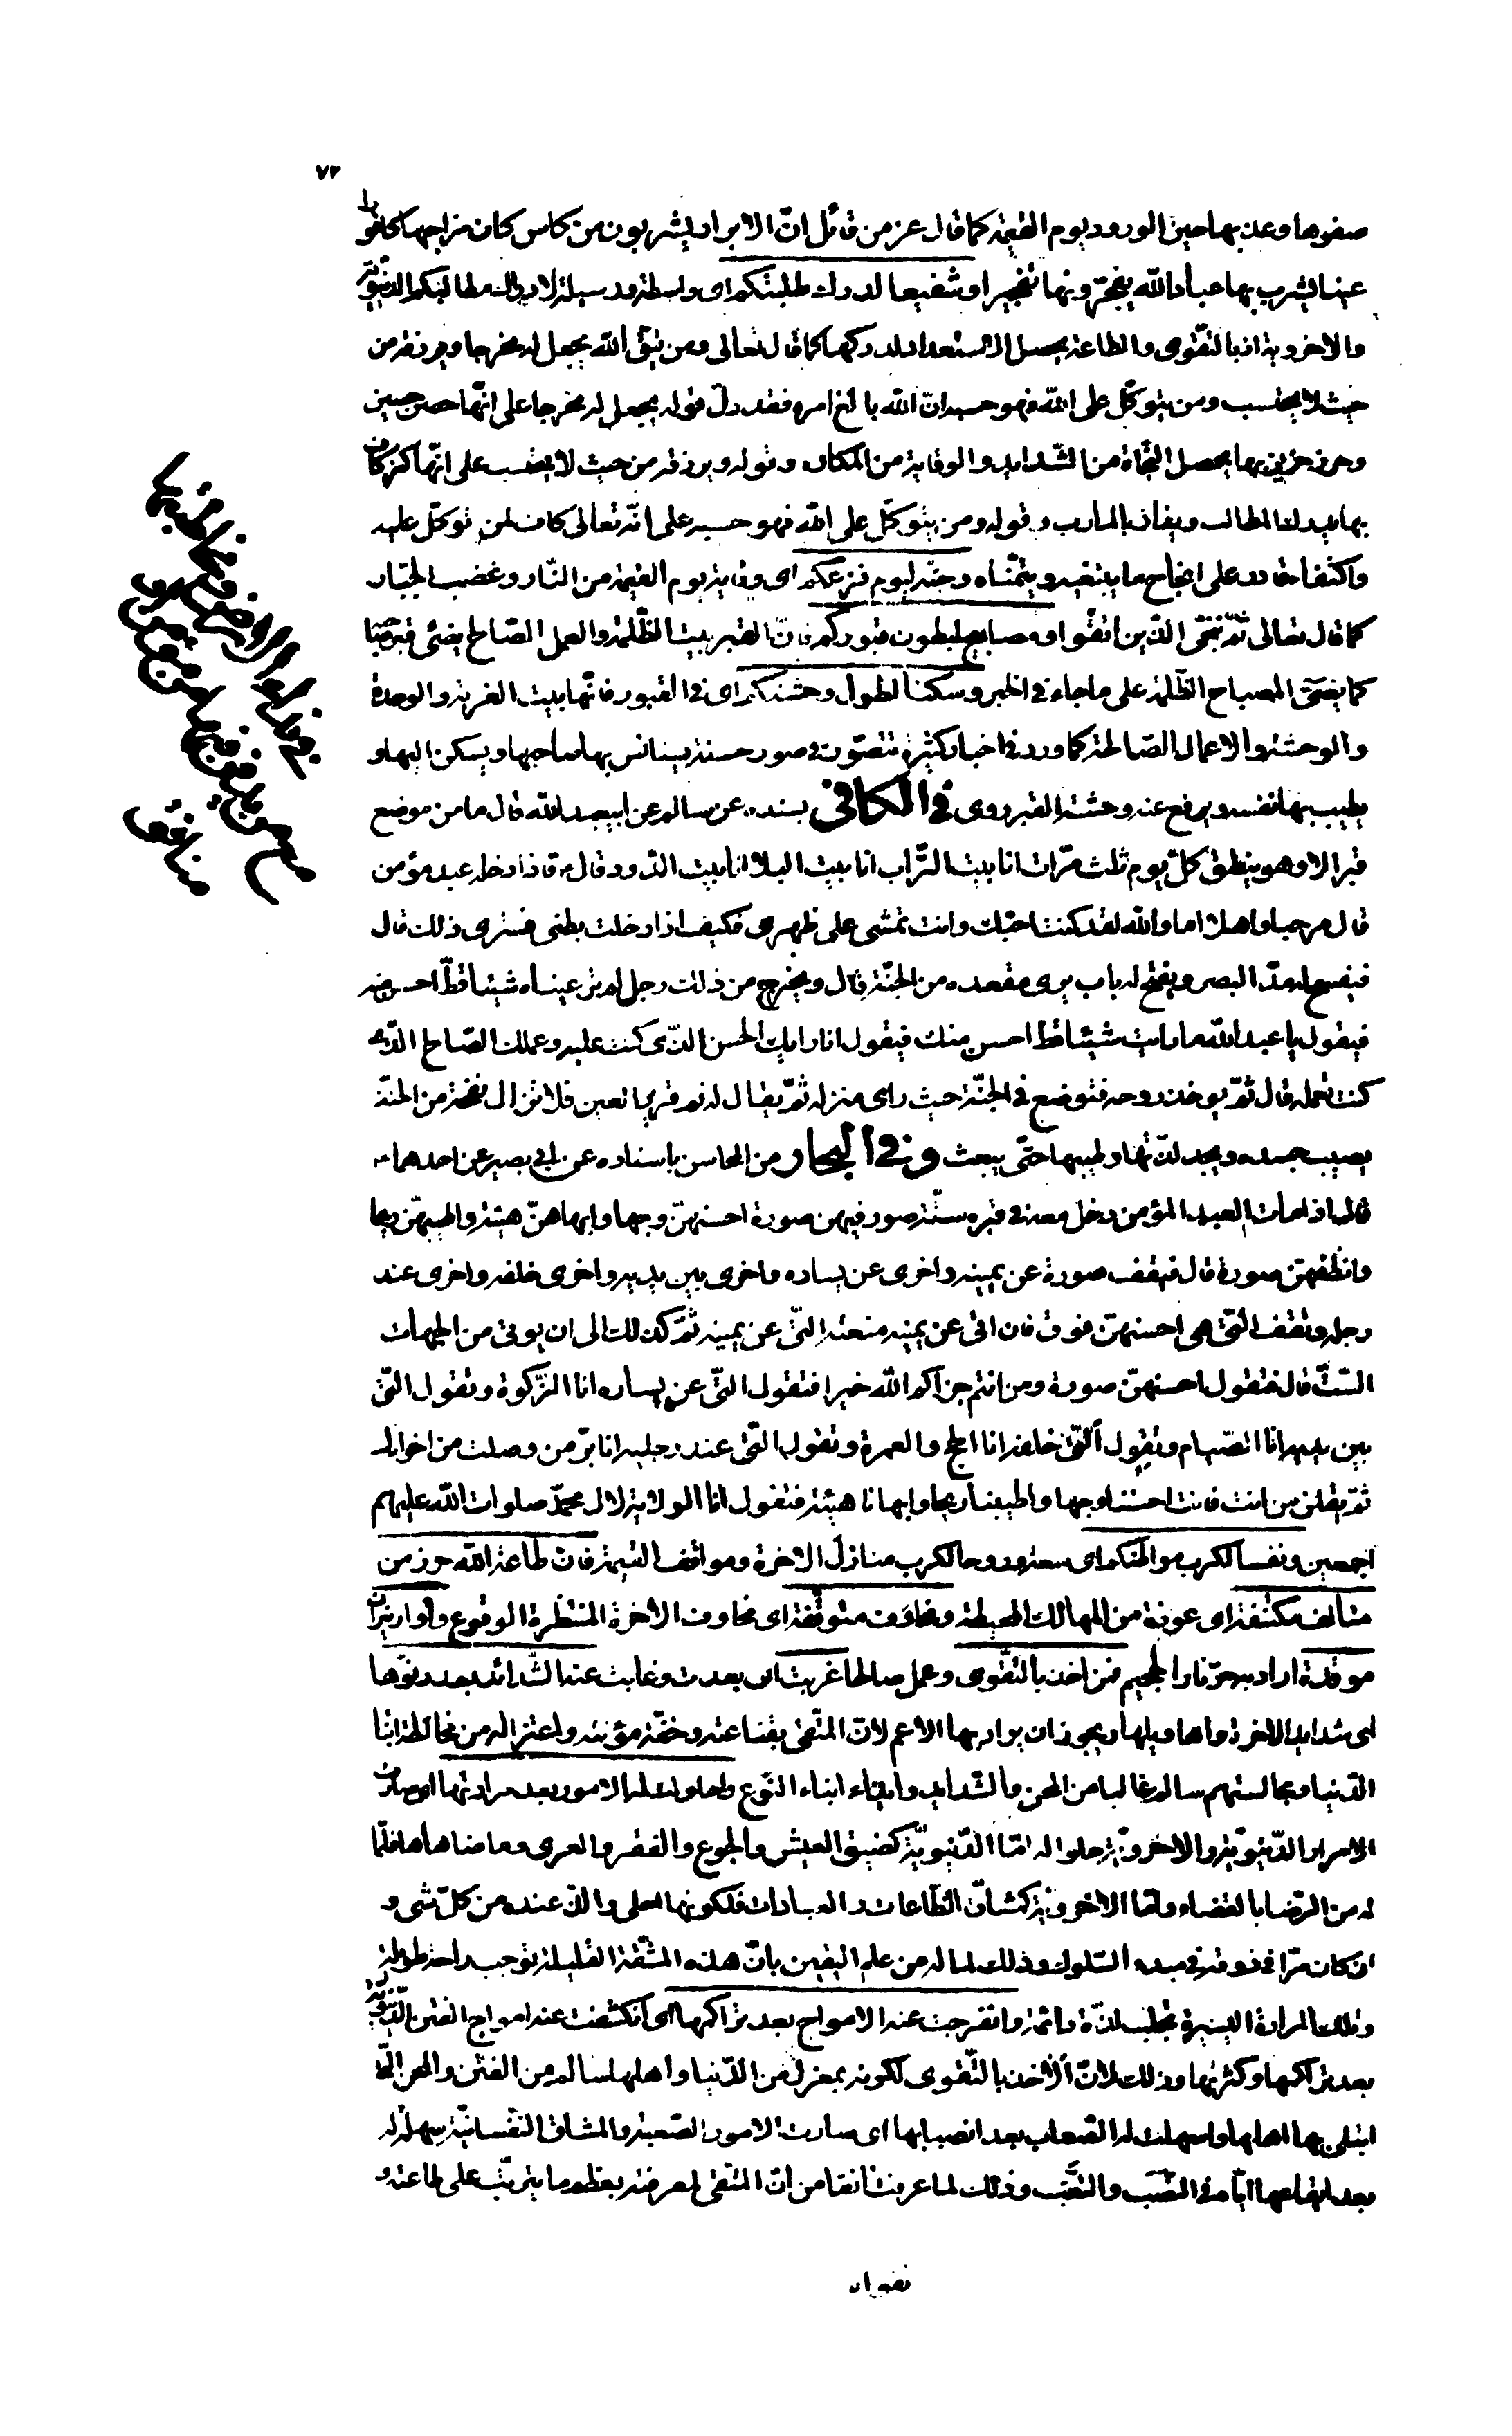 ٧٣
صفوها وعذبها حين الورود يوم القيمة كما قال عز من قائل انّ الابرار يشربون من كاس كان مزاجها كافورا
عينا يشرب بها عباد الله يفجّرونها تفجيرا وشفيعا لدرك طلبتكم اى واسطة ووسيلة لادراك مطالبكم الدّنيويّة
والاخروية اذ بالتّقوى والطاعة يحصل الاستعداد لدركها كما قال تعالى ومن يتّق الله يجعل له مخرجا ويرزقه من
حيث لا يحتسب ومن يتوكّل على الله فهو حسبه انّ الله بالغ امره فقد دلّ قوله يجعل له مخرجا على انّها حصن حصين
وحرز حريز بها يحصل النّجاة من الشّدايد والوقاية من المكاره وقوله ويرزقه من حيث لا يحتسب على انّها كنز كاف
بها يدرك المطالب ويفاز بالمارب وقوله ومن يتوكّل على الله فهو حسبه على انّه تعالى كاف لمن توكّل عليه
واكتفا به قادر على انجاح ما يبتغيه ويتمنّاه وجنّة ليوم فزعكم اى وقاية يوم القيمة من النّار وغضب الجبّار
كما قال تعالى ثمّ ننجّى الذّين اتقوا ومصابيح لبطون قبوركم فانّ القبر بيت الظّلمة والعمل الصّالح يضئى قبر صاحبه
كما يضئى المصباح الظّلمة على ما جاء فى الخبر وسكنا لطول وحشتكم اى فى القبور فانّها بيت الغربة والوحدة
والوحشة والاعمال الصّالحة كما ورد فى اخبار كثيرة تتصوّر فى صور حسنة يستانس بها صاحبها ويسكن اليها و
يطيب بها نفسه ويرفع عنه وحشة القبر روى فى الكافى بسنده عن سالم عن ابيعبد الله قال ما من موضع
قبر الا وهو ينطق كلّ يوم ثلث مرّات انا بيت التّراب انا بيت البلا انا بيت الدّود قال ع فاذا دخله عبد مؤمن
قال مرحبا واهلا اما والله لقد كنت احبّك وانت تمشى على ظهرى فكيف اذا دخلت بطنى فسترى ذلك قال
فيفسح له مدّ البصر ويفتح له باب يرى مقعده من الجنّة قال ويخرج من ذلك رجل لم تر عيناه شيئا قطّ احسن منه
فيقول يا عبد الله ما رايت شيئا قط احسن منك فيقول انا رايك الحسن الذّى كنت عليه وعملك الصّالح الذّى
كنت تعمله قال ثمّ يوخذ روحه فتوضع فى الجنّة حيث راى منزله ثمّ يقال له نم قرير العين فلا تزال نفخة من الجنّة
يصيب جسده ويجد لذّتها وطيبها حتّى يبعث وفى البحار من المحاسن باسناده عن ابى بصير عن احدهما ع
قال اذا مات العبد المؤمن دخل معه فى قبره ستّة صور فيهن صورة احسنهنّ وجها وابهاهنّ هيئة واطيبهنّ ريحا
وانظفهنّ صورة قال فيقف صورة عن يمينه واخرى عن يساره واخرى بين يديه واخرى خلفه واخرى عند
رجله وتقف التّى هى احسنهنّ فوق فان اتى عن يمينه منعته التّى عن يمينه ثمّ كذلك الى ان يوتى من الجهات
السّتّ قال فتقول احسنهنّ صورة ومن انتم جزاكم الله خيرا فتقول التّى عن يساره انا الزّكوة وتقول التّى
بين يديه انا الصّيام وتقول التّى خلفه انا الحج والعمرة وتقول التّى عند رجليه انا برّ من وصلت من اخوانك
ثمّ يقلن من انت فانت احسننا وجها واطيبنا ريحا وابهانا هيئة فتقول انا الولاية لال محمّد صلوات الله عليهم
اجمعين ونفسا لكرب مواطنكم اى سعة وروحا لكرب منازل الاخرة ومواقف القيمة فانّ طاعة الله حرز من
متالف مكتنفة اى عوذة من المهالك المحيطة ومخاوف متوقّعة اى مخاوف الاخرة المنتظرة الوقوع واوار نيران
موقدة اراد به حرّ نار الجحيم فمن اخذ بالتّقوى وعمل صالحا عزبت اى بعدت وغابت عنه الشّدائد بعد دنوّها
اى شدايد الاخرة واهاويلها ويجوز ان يراد بها الاعم لانّ المتّقى بقناعته وخفّة مؤنته واعتزاله من مخالطة ابنا
الدّنيا ومجالستهم سالم غالبا من المحن والشّدايد وايذاء ابناء النّوع واحلولت له الامور بعد مرارتها اى صارت
الامور الدّنيويّة والاخرويّة حلوا له امّا الدّنيويّة كضيق العيش والجوع والفقر والعرى وما ضاهاها فلما
له من الرّضا بالقضاء وامّا الاخرويّة كمشاقّ الطّاعات والعبادات فلكونها احلى والذّ عنده من كلّ شى و
ان كان مرّا فى ذوقه فى مبدء السّلوك وذلك لما له من علم اليقين بانّ هذه المشّقة القليلة توجب راحة طويلة
وتلك المرارة اليسيرة تجلب لذّة دائمة وانفرجت عنه الامواج بعد تراكمها اى انكشفت عنه امواج الفتن الدّنيويّة
بعد تراكمها وكثرتها وذلك لانّ الاخذ بالتّقوى لكونه بمعزل من الدّنيا واهلها سالم من الفتن والمحن التّى
ابتلى بها اهلها واسهلت له الصّعاب بعد انصبابها اى صارت الامور الصّعبة والمشاق النّفسانيّة سهلة له
بعد ايقاعها ايّاه فى النّصب والتّعب وذلك لما عرفت آنفا من انّ المتّقى لمعرفته بعظم ما يترتّب على طاعته و
تقواه